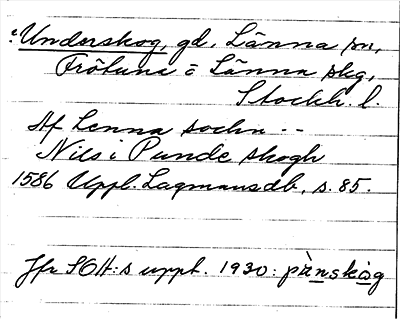 : Underskog, gd, Länna sn,
Frötuna o Länna skg,
Stockh. l.
Af Lenna sochn --
Nils i Punde skogh
1586 Uppl. Lagmansdb, s. 85.
Jfr SOH:s uppt. 1930: pànskòg